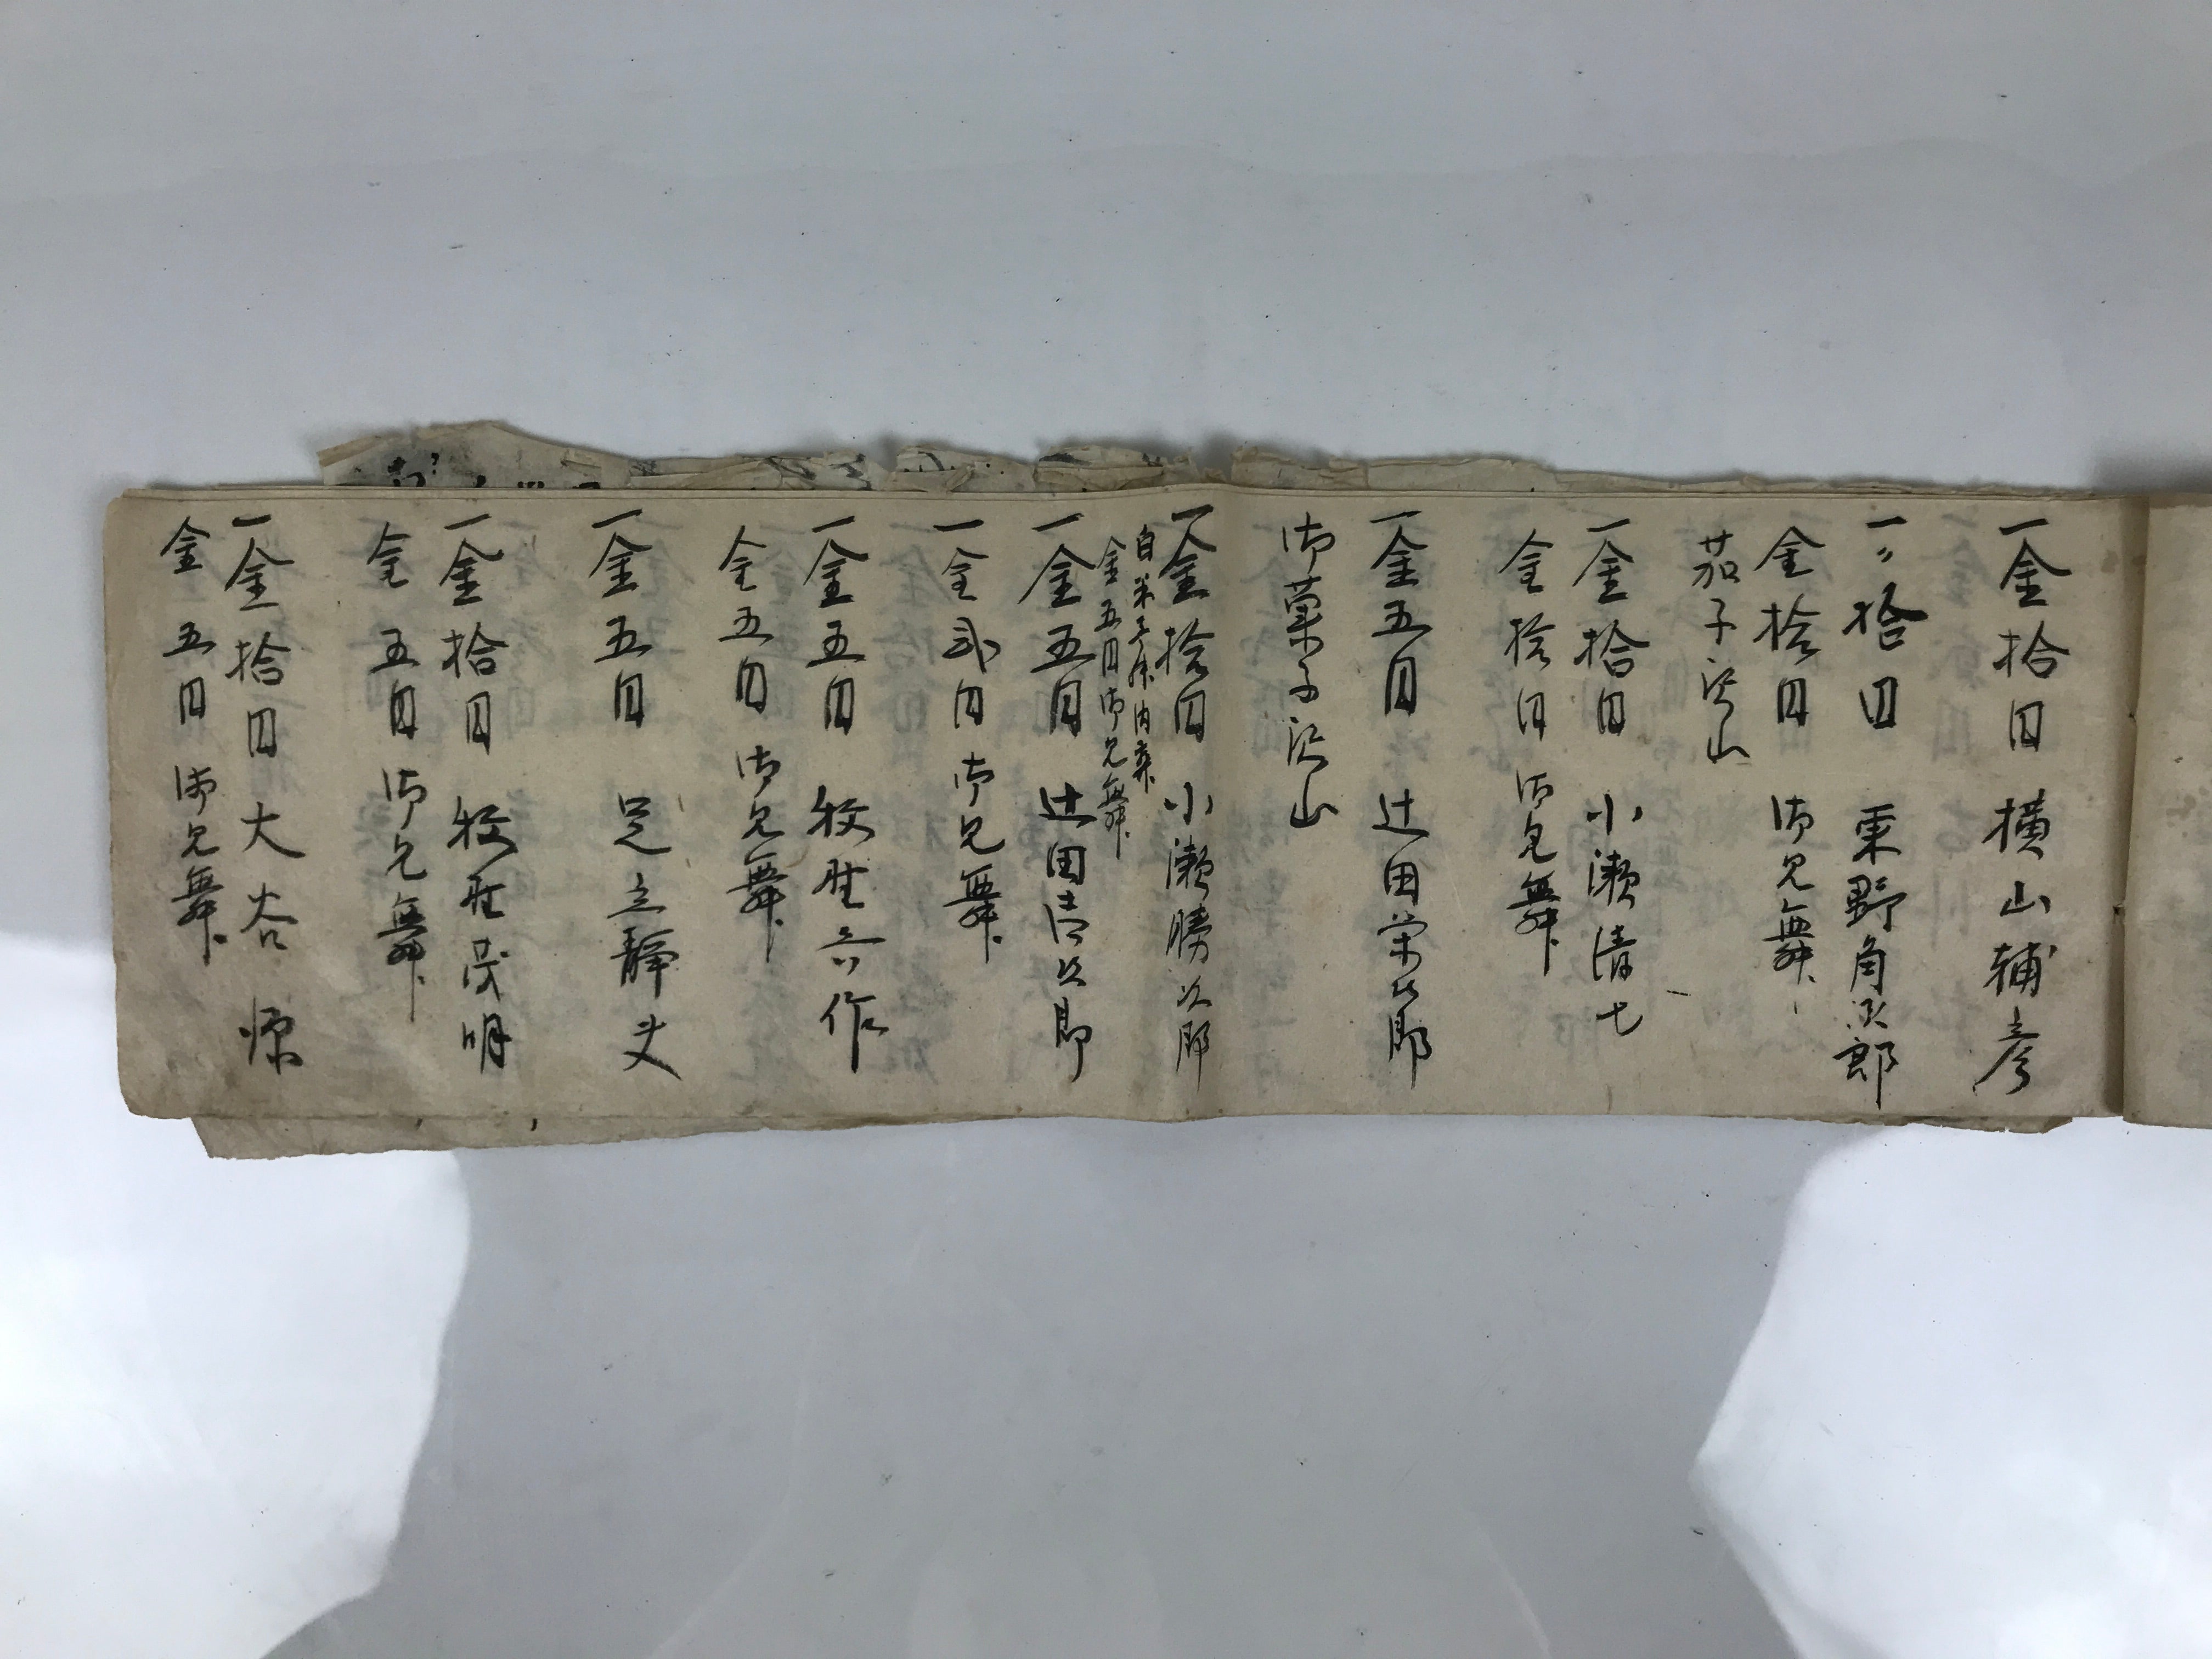 一金拾円 横山輔彦
一〃拾円 栗野角次郎
金拾円 御見舞
茄子沢山
一金拾円 小瀬清七
金拾円 御見舞
一金五円 辻田栄次郎
御菓子沢山
一金拾円 小瀬勝次郎
白米 内棄
金五円御見舞
一金五円 辻田清次郎
一金弐円 御見舞
一金五円 牧野六作
金五円 御見舞
一金五円 足立静夫
一金拾円 牧野茂明
金五円 御見舞
一金拾円 大谷
金五円 御見舞